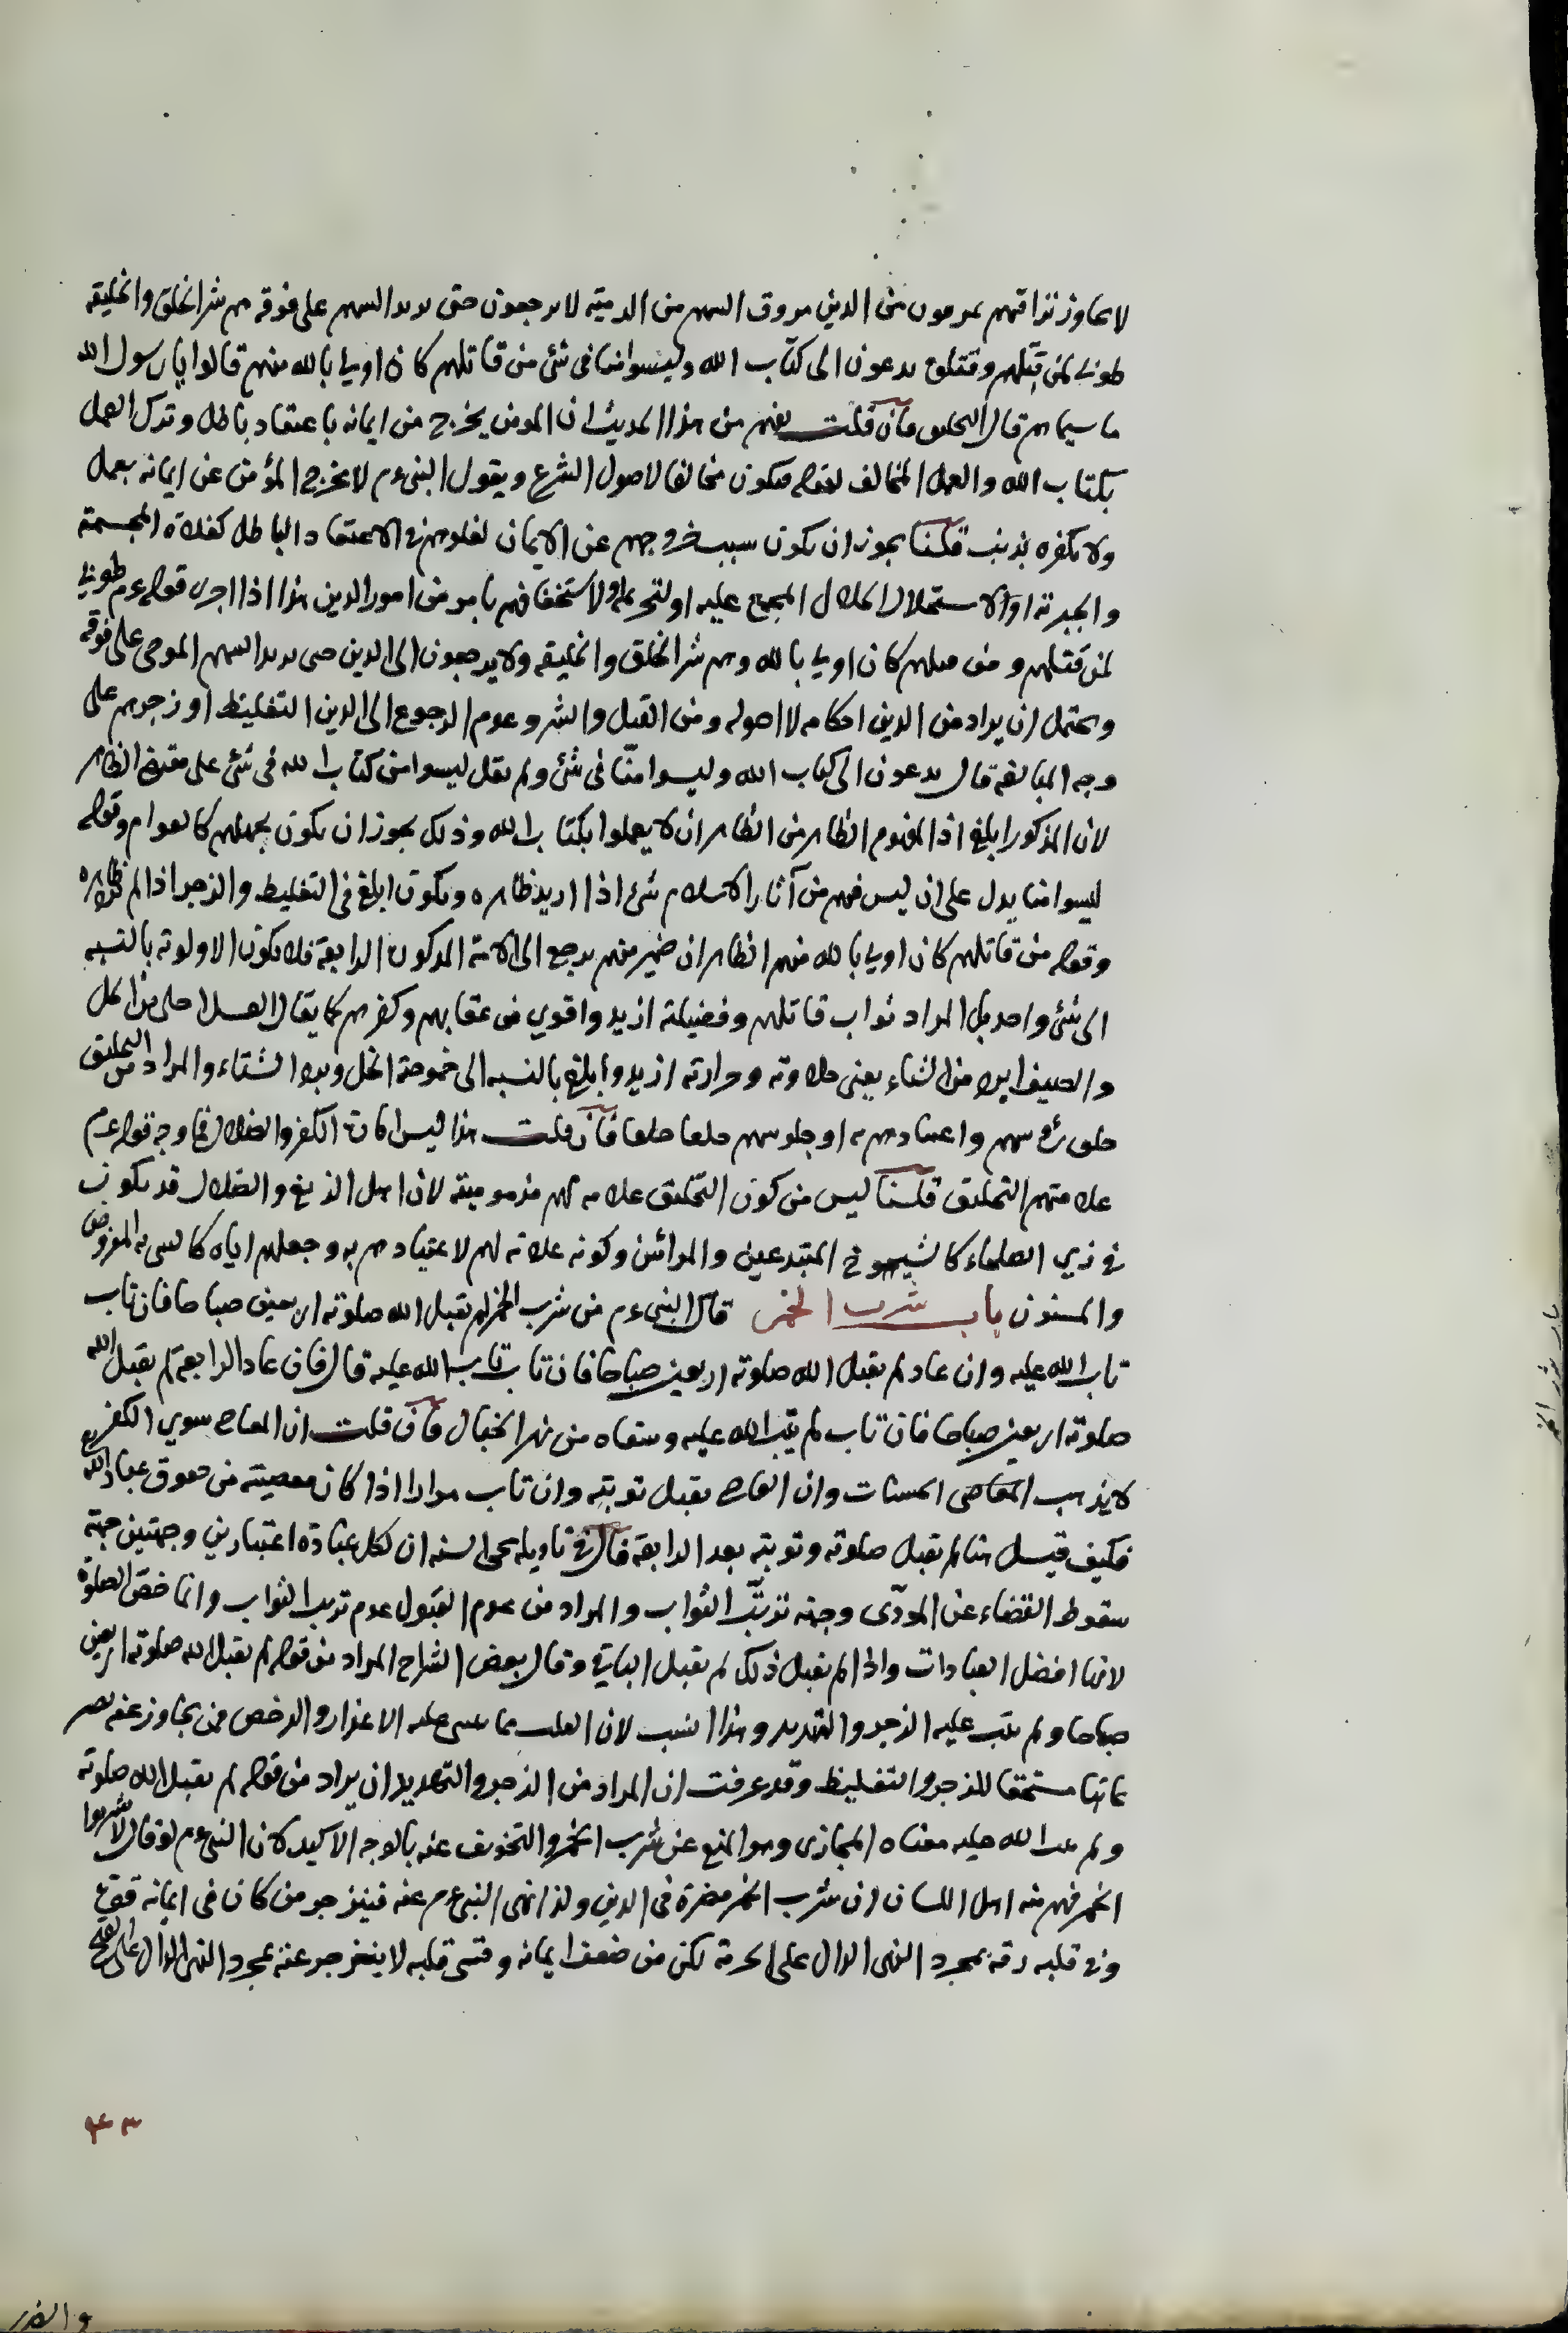 لا يجاوز تراقيهم يمرقون من الدين مروق السهم من الرمية لا يرجعون حتى يرتد السهم على فوقه هم شر الخلق والخليقة
طوبى لمن قتلهم وقتلوه يدعون الى كتاب الله وليسوا منا فى شئ من قاتلهم كان اولى بالله منهم قالوا يا رسول الله
ما سيماهم قال التحليق فان قلت يفهم من هذا الحديث ان المؤمن يخرج من ايمانه باعتقاد باطل وترك العمل
بكتاب الله والعمل المخالف لقوله فيكون مخالفا لاصول الشرع ويقول النبى عم لا يخرج المؤمن عن ايمانه بعمل
ولا نكفره بذنب قلنا يجوز ان يكون سبب خروجهم عن الايمان لغلوهم فى الاعتقاد الباطل كغلاة المجسمة
والجبرية او لاستحلال الحلال المجمع عليه او لتحريمه او لاستخفافهم بامر من امور الدين هذا اذا اجرى قوله عم طوبى
لمن قتلهم ومن قتلهم كان اولى بالله وهم شر الخلق والخليقة ولا يرجعون الى الدين حتى يرتد السهم المرمى على فوقه
ويحتمل ان يراد من الدين احكامه لا اصوله ومن القتل والشر وعدم الرجوع الى الدين التغليظ او زجرهم على
وجه المبالغة قال يدعون الى كتاب الله وليسوا منا فى شئ ولم يقل ليسوا من كتاب الله فى شئ على مقتضى الظاهر
لان المذكور ابلغ اذ المفهوم الظاهر من الظاهر ان لا يعملوا بكتاب الله وذلك يجوز ان يكون بجهلهم كالعوام وقوله
ليسوا منا يدل على ان ليس فيهم من آثار الاسلام شئ اذا اريد ظاهره ويكون ابلغ فى التغليظ والزجر اذا لم يرد ظاهره
وقوله من قاتلهم كان اولى بالله منهم الظاهر ان ضمير منهم يرجع الى الامة المذكورة الرابعة فلا يكون الاولوية بالنسبة
الى شئ واحد بل المراد ثواب قاتلهم وفضيلته ازيد واقوى من عقابهم وكفرهم كما يقال العسل احلى من الخل
والصيف ابرد من الشتاء يعنى حلاوته وحرارته ازيد وابلغ بالنسبة الى حموضة الخل وبرد الشتاء والمراد من التحليق
حلق رؤسهم واعتيادهم به او جلوسهم حلقا حلقا فان قلت هذا ليس امارة الكفر والضلال فما وجه قوله عم
علامتهم التحليق قلنا ليس من كون التحليق علامة لهم مذموميته لان اهل الزيغ والضلال قد يكون
فى زى الصلحاء كالشيوخ المبتدعين والمرائين وكونه علامة لهم لاعتيادهم به وجعلهم اياه كالشىء المفروض
والمسنون باب شرب الخمر قال النبى عم من شرب الخمر لم يقبل الله صلوته اربعين صباحا فان تاب
تاب الله عليه وان عاد لم يقبل الله صلوته اربعين صباحا فان تاب تاب الله عليه قال فان عاد الرابعة لم يقبل الله
صلوته اربعين صباحا فان تاب لم يتب الله عليه وسقاه من نهر الخبال فان قلت ان المعاصى سوى الكفر
لا يذهب المعاصى الحسنات وان العاصى يقبل توبته وان تاب مرارا اذا كان معصيته من حقوق عباد الله
فكيف قيل هنا لم يقبل صلوته وتوبته بعد الرابعة قال فى تاويله محى السنه ان لكل عبادة اعتبارين وجهتين جهة
سقوط القضاء عن المؤدّى وجهة ترتّب الثواب والمراد من عدم القبول عدم ترتب الثواب وانما خصّ الصلوة
لانها افضل العبادات واذا لم يقبل ذلك لم يقبل الباقى وقال بعض الشراح المراد من قوله لم يقبل الله صلوته اربعين
صباحا ولم يتب عليه الزجر والتهديد وهذا انسب لان الاعذار والرخص فمن يجاوز عنه يصر
مستحقا للزجر والتغليظ وقد عرفت ان المراد من الزجر والتهديد ان يراد من قوله لم يقبل الله صلوته
ولم يتب الله عليه معناه المجازى وهو المنع عن شرب الخمر والتخويف عنه بالوجه الاكيد لان النبى عم لو قال لا تشربوا
الخمر فهم منه اهل اللسان ان شرب الخمر مضرة فى الدين ولذا نهى النبى عم عنه فينزجر من كان فى ايمانه قوة
وفى قلبه رقة بمجرد النهى الدال على الحرمة لكن من ضعف ايمانه وقسى قلبه لا ينزجر عنه بمجرد النهى الدال على القبح
٤٣
والضرر
باب شرب الخمر